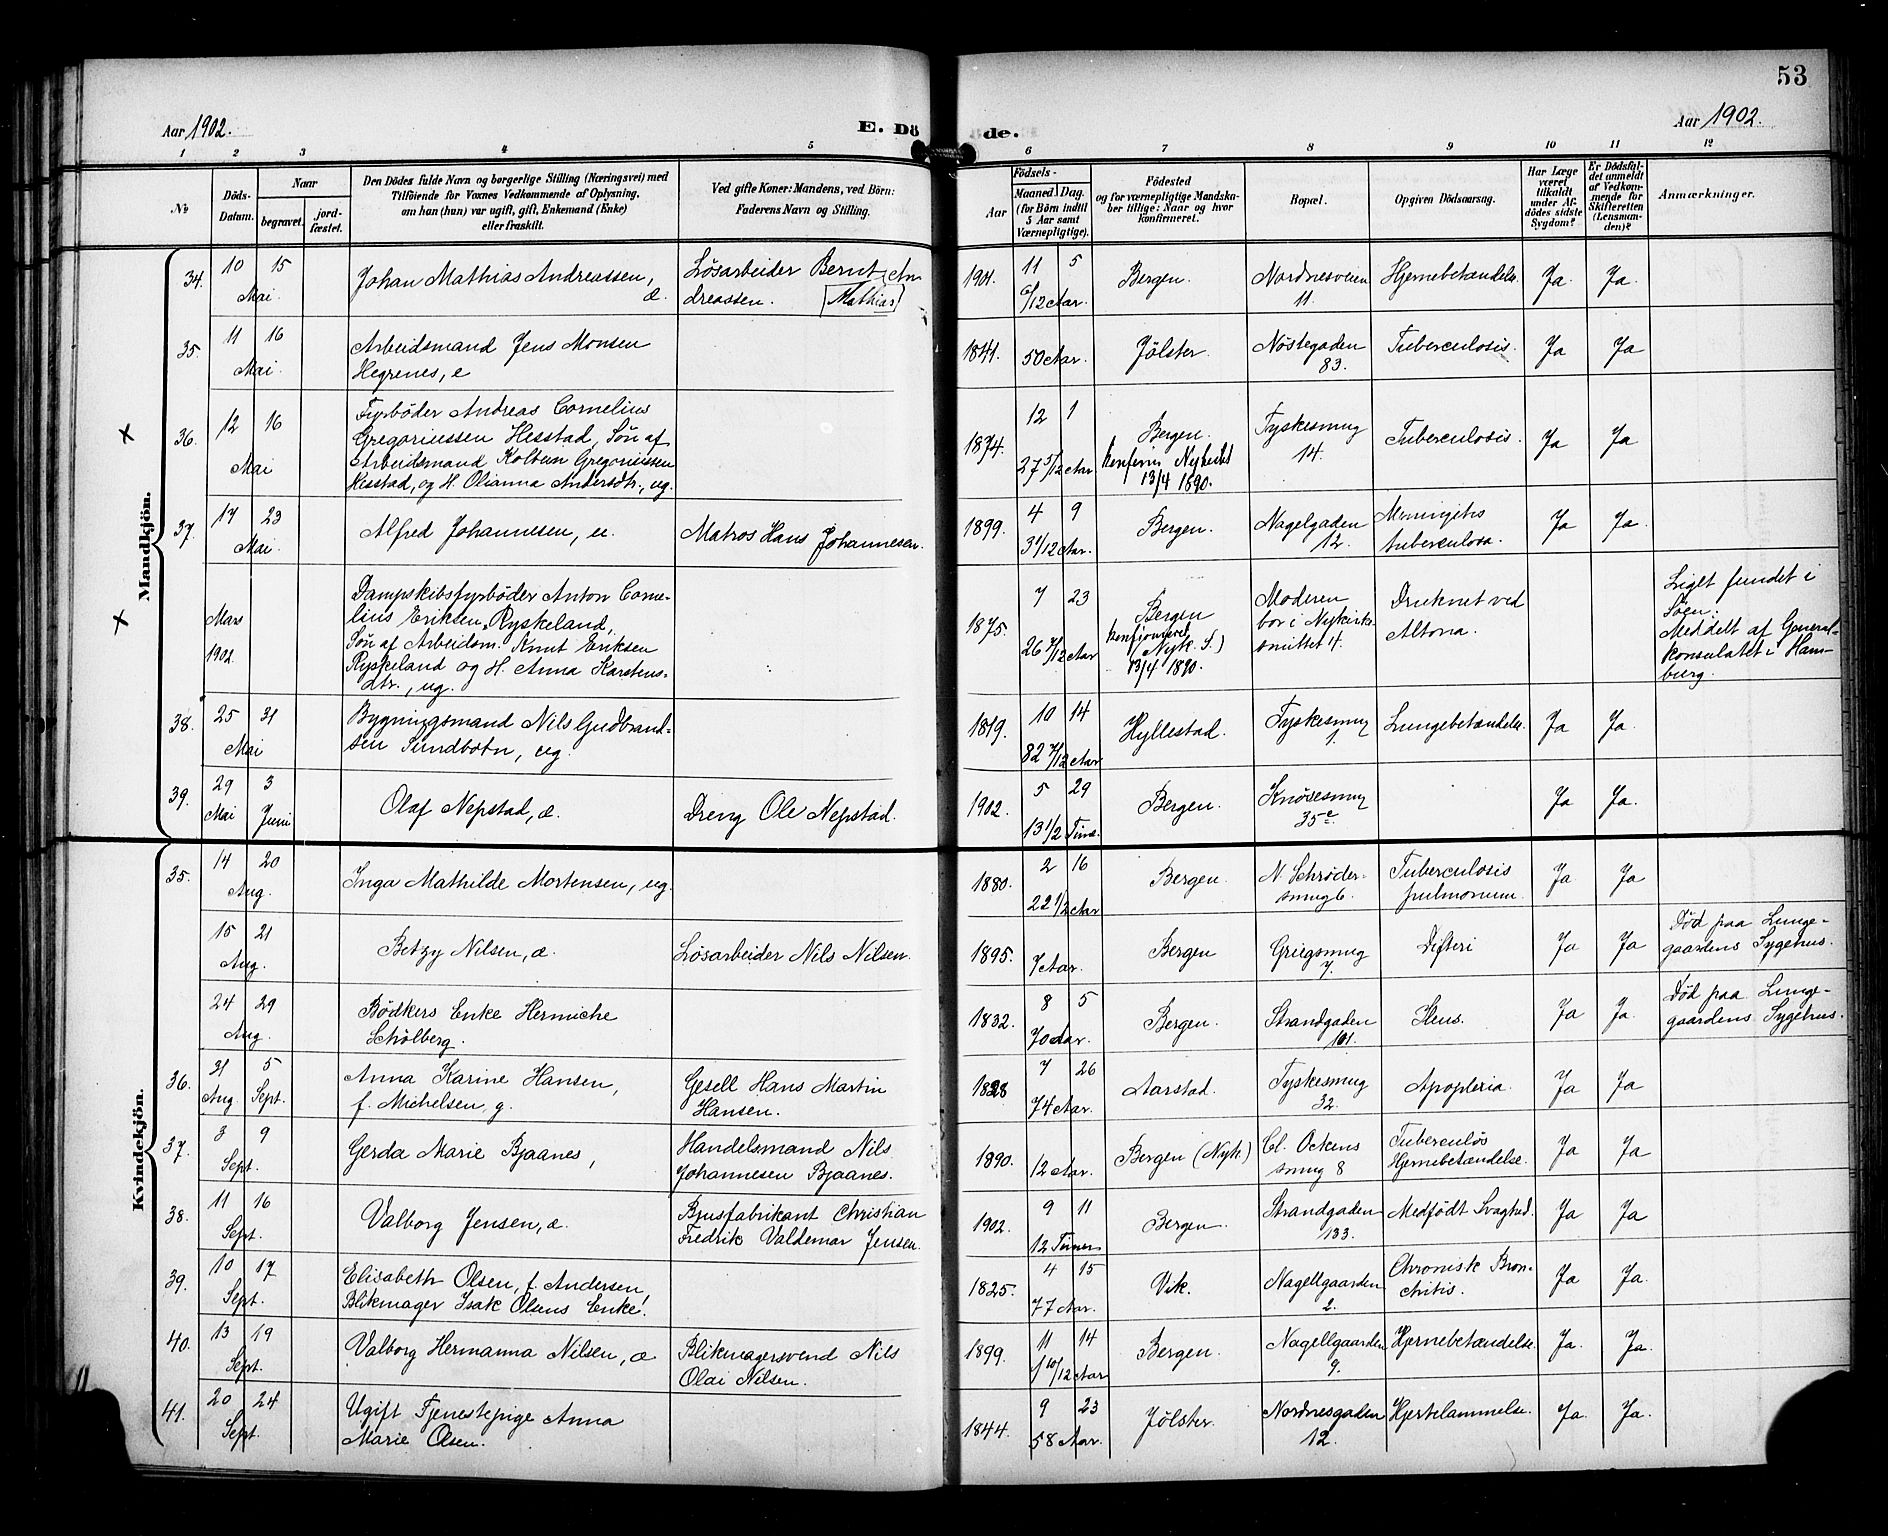 53
Aar 1902.
E. Döde.
Aar 1902.
1 2 3 4 5 6 7 8 9 10 11 12
№
Döds-Datum.
Naar
begravet.
jordfæstet.
Den Dödes fulde Navn og borgerlige Stilling (Næringsvei) med
Tilföiende for Voxnes Vedkommende af Oplysning,
om han (hun) var ugift, gift, Enkemand (Enke)
eller fraskilt.
Ved gifte Koner: Mandens, ved Börn:
Faderens Navn og Stilling.
Aar
Födsels-
Maaned. Dag.
(for Börn indtil
5 Aar samt
Værnepligtige).
Födested
og for værnepligtige Mandska-
ber tillige: Naar og hvor
konfirmeret.
Bopæl.
Opgiven Dödsaarsag.
Har Læge
været
tilkaldt
under Af-
dödes sidste
Sygdom?
Er Dödsfal-
det anmeldt
af Vedkom-
mende for
Skifteretten
(Lensman-
den)?
Anmærkninger.
Mandkjön.
34. 10 Mai 15 Johan Mathias Andreassen, æ. Lösarbeider Bernt [Mathias] Andreassen. 1901. 11 5 6/12 Aar. Bergen. Nordnesveien 11. Hjernebetændelse. Ja. Ja.
35. 11 Mai 16 Arbeidsmand Jens Monsen
Hegrenes, e 1841. 50 Aar. Jølster. Nöstegaden 83. Tuberculosis. Ja Ja
× 36. 12 Mai 16 Fyrböder Andreas Cornelius
Gregoriussen Hesstad, Sön af
Arbeidsmand Kolbein Gregoriussen
Hesstad, og H. Olianna Andersdtr., ug. 1874. 12 1 27 5/12 Aar Bergen. 13/4 1890. Tyskesmug 14. Tuberculosis. Ja Ja
37. 17 Mai 23 Alfred Johannesen, æ. Matros Hans Johannesen. 1899. 4 9 3 1/12 Aar. Bergen. Nagelgaden 12. Meningitis tuberculosa. Ja Ja.
× Mars 1902. Dampskibsfyrböder Anton Corne-
lius Eriksen Ryskeland,
Sön af Arbeidsm. Knut Eriksen
Ryskeland og H. Anna Karstens-
dtr., ug. 1875. 7 23 26 7/12 Aar Bergen
konfirmeret
(Nyk. S.)
13/4 1890. Moderen
bor i Nykirke-
smuttet 4. Druknet ved
Altona. Liget fundet i
Söen.
Meddelt af General-
konsulatet i Ham-
burg.
38. 25 Mai 31 Bygningsmand Nils Gudbrand-
sen Sundbotn, ug. 1819. 10 14 82 7/12 Aar Hyllestad. Tyskesmug 1. Lungebetændelse. Ja Ja.
39. 29 Mai 3 Juni Olaf Nepstad, æ. Dreng Ole Nepstad. 1902. 5 29 13 1/2 Time. Bergen. Knösesmug 35 Ja Ja.
Kvindekjön.
35. 14 Aug. 20 Inga Mathilde Mortensen, ug. 1880. 2 16 22 1/2 Aar Bergen. N. Schröder-
smug 6. Tuberculosis
pulmonum. Ja Ja
15 Aug. 21 Betzy Nilsen, æ. Lösarbeider Nils Nilsen. 1895. 7 Aar. Bergen Griegsmug 7. Difteri Ja Ja Död paa Lunge-
gaardens Sygehus.
24 Aug. 29 Bödkers Enke Hermiche
Schölberg. 1832. 8 5 70 Aar. Bergen. Strandgaden 101. Ileus. Ja Ja. Död paa Lunge-
gaardens Sygehus.
36. 31 Aug. 5 Sept. Anna Karine Hansen,
f. Michelsen, g. Gesell Hans Martin
Hansen. 1828 7 26 74 Aar. Aarstad. Tyskesmug 32. Apoplexia. Ja Ja
37. 3 Sept. 9 Gerda Marie Bjaanes, Handelsmand Nils
Johannesen Bjaanes. 1890. 12 Aar. Bergen (Nyk.) Cl. Ockens
smug 8 Tuberculös
Hjernebetændelse. Ja Ja
38. 11 Sept. 16 Valborg Jensen, æ. Brusfabrikant Christian
Fredrik Valdemar Jensen. 1902. 9 11 12 Timer Bergen. Strandgaden 133. Medfödt Svaghed. Ja Ja
39. 10 Sept. 17 Elisabeth Olsen, f. Andersen
Blikmager Isak Olsens Enke. 1825. 4 15 77 Aar. Vik. Nagellgaarden 2. Chronisk Bron-
chitis. Ja Ja.
40. 13 Sept. 19 Valborg Hermanna Nilsen, æ Blikmagersvend Nils
Olai Nilsen. 1899. 11 14 10/12 Aar Bergen. Nagellgaarden 9. Hjernebetændelse. Ja. Ja.
41. 20 Sept. 24 Ugift Tjenestepige Anna
Marie Olsen. 1844. 9 23 58 Aar. Jölster. Nordnesgaden 12. Hjertelammelse. Ja. Ja.